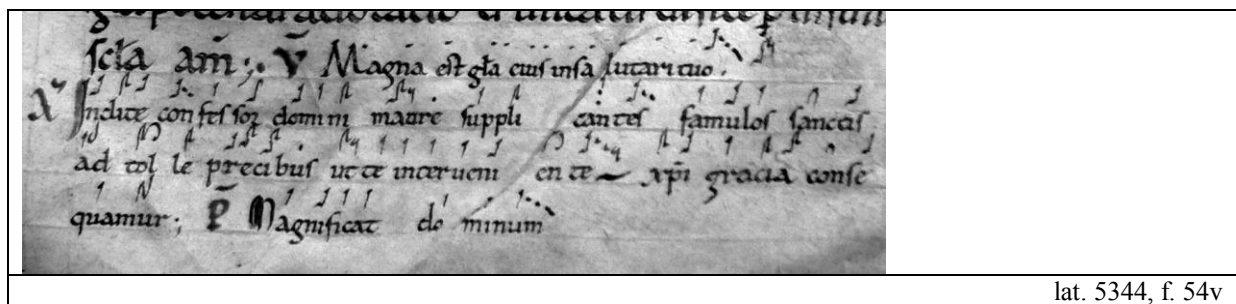 scl̄a am̄ ;. V̄ Magna est gl̄a eius insa lutari tuo.
Indite confessor domini maure suppli cantes famulos sanctis
ad tol le precibus ut te interueni en te xp̄i gracia conse
quamur; P̄ Magnificat do minum
lat. 5344, f. 54v